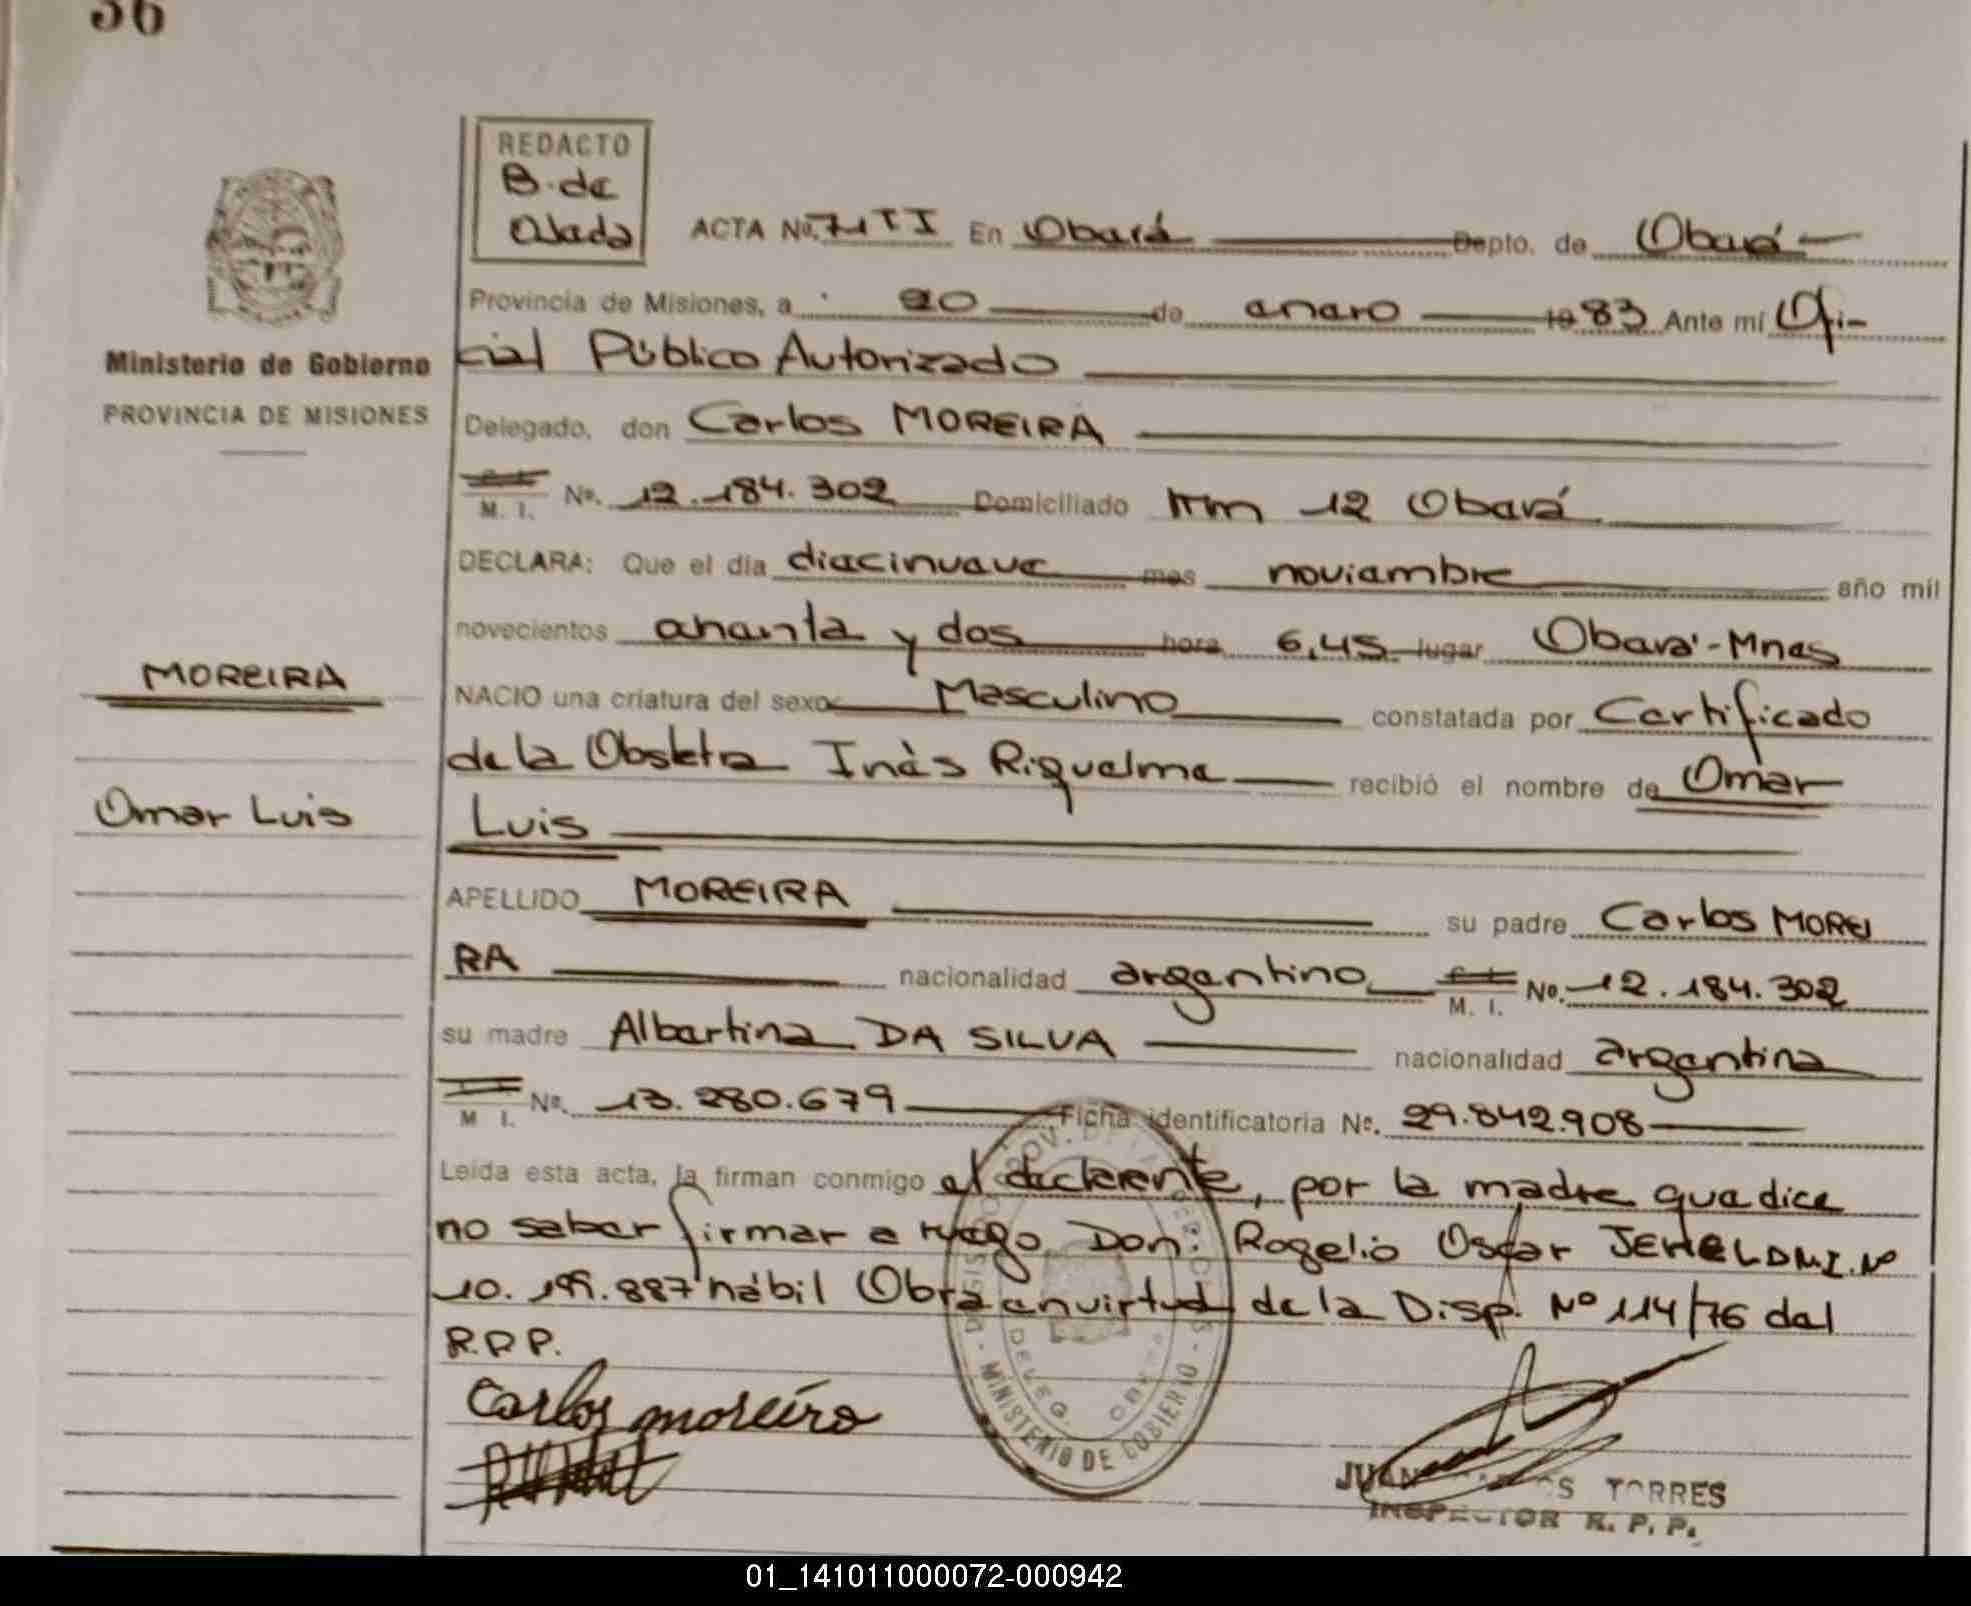 36
REDACTO
B. de
Ojeda
ACTA No. 71 TI En Oberá Depto. de Oberá
Provincia de Misiones, a 20 de enero 1983 Ante mí Ofi-
cial Público Autorizado
Ministerio de Gobierno
PROVINCIA DE MISIONES
Delegado, don Carlos MOREIRA
M. I. No. 12.184.302 Domiciliado Km 12 Oberá
DECLARA: Que el día diecinueve mes noviembre año mil
novecientos ochenta y dos hora 6,45 lugar Oberá-Mnes
MOREIRA
NACIO una criatura del sexo Masculino constatada por Certificado
de la Obstetra Inés Riquelme recibió el nombre de Omar
Omar Luis
Luis
APELLIDO MOREIRA su padre Carlos MOREI
RA nacionalidad argentino M. I. No. 12.184.302
su madre Albertina DA SILVA nacionalidad argentina
M I. No. 13.280.679 Ficha identificatoria No. 29.842.908
Leída esta acta, la firman conmigo el declarente, por la madre que dice
no saber firmar a ruego Don: Rogelio Oscar M.I. Nº
10.199.887 hábil Obra en virtud de la Disp. Nº 114/76 del
R.P.P.
Carlos moreira
MINISTERIO DE GOBIERNO
JUAN CARLOS TORRES
INSPECTOR R. P. P.
01_141011000072-000942